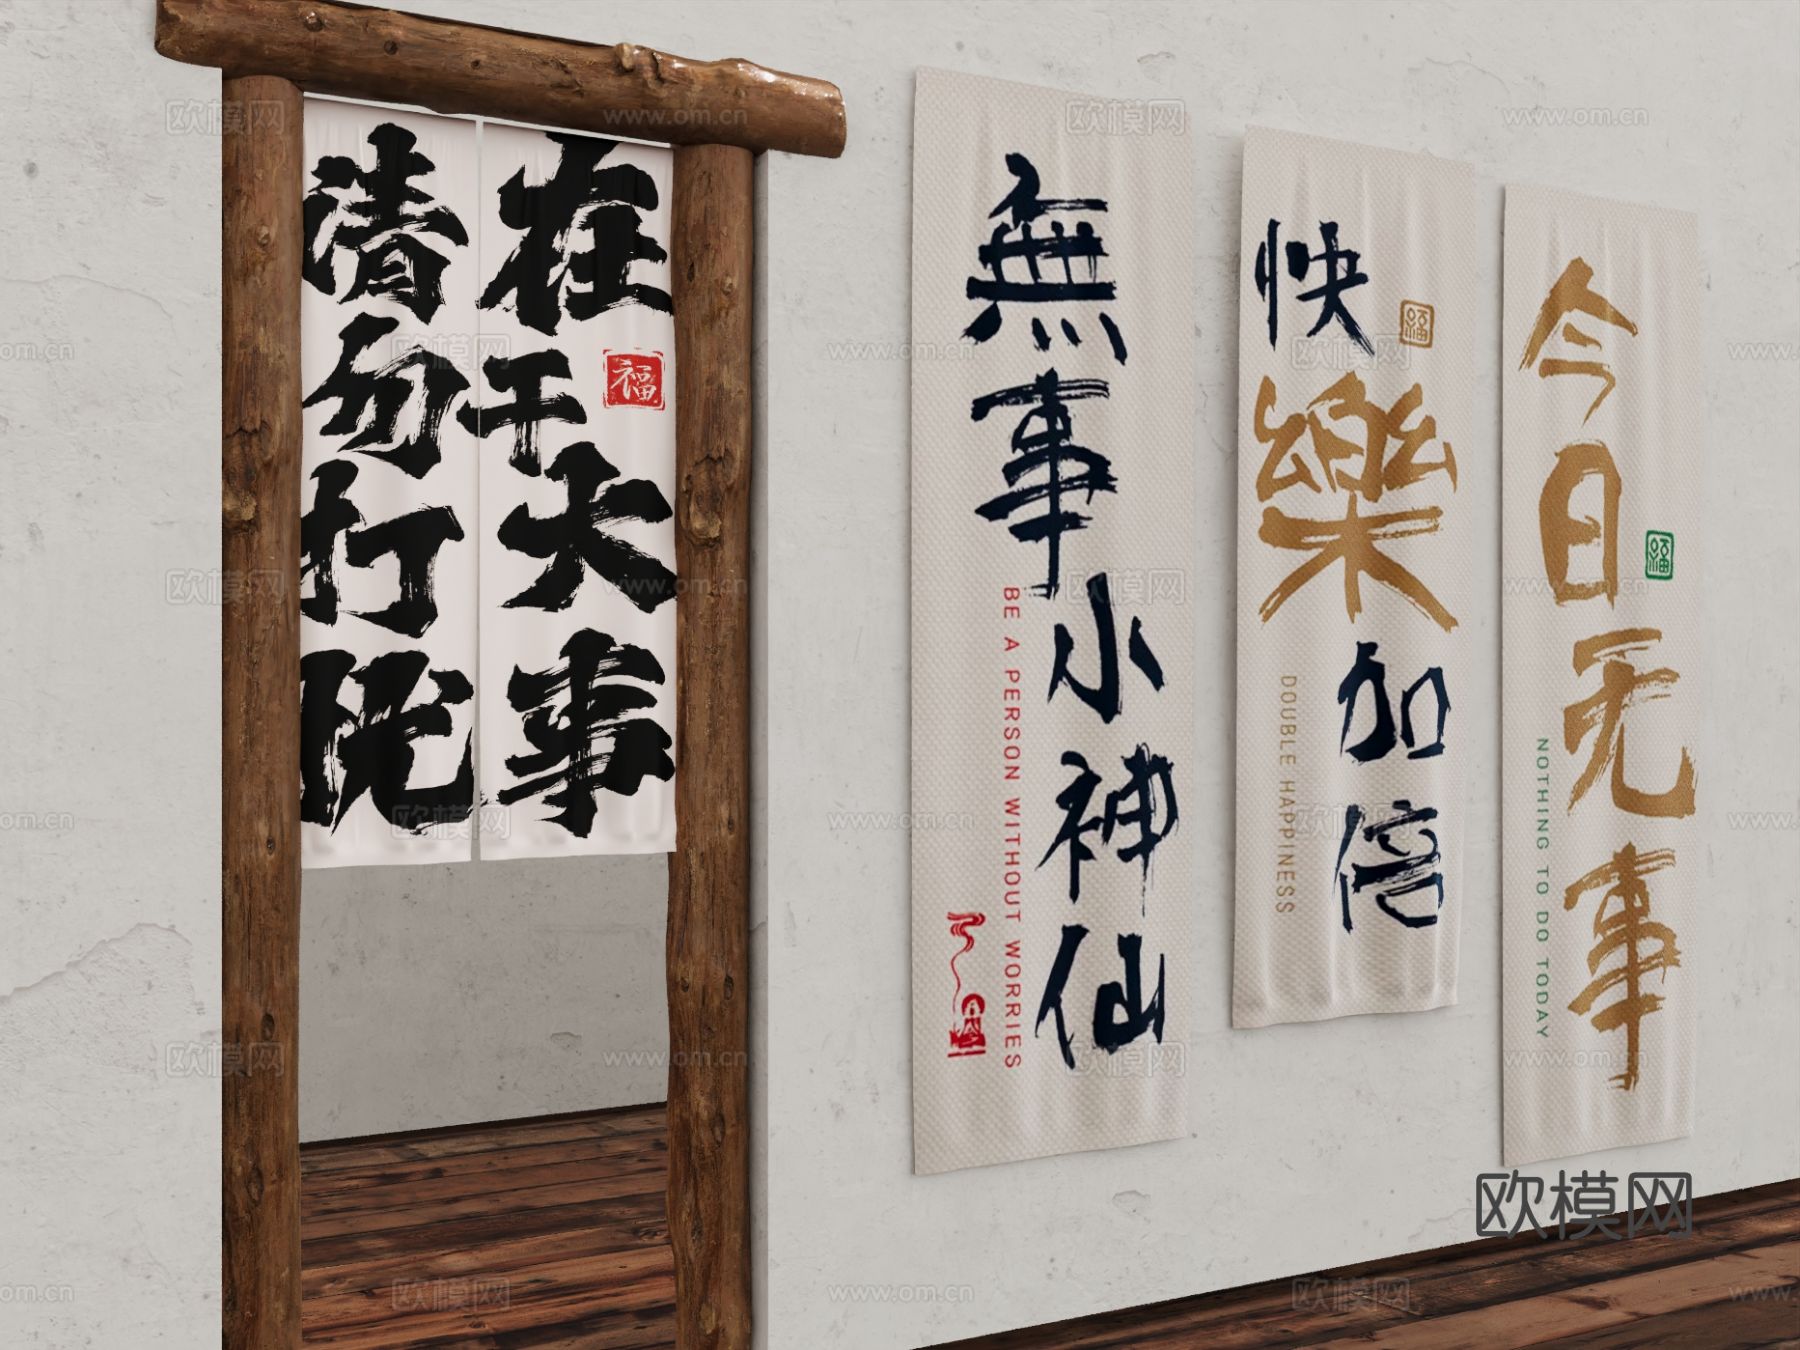 在干大事
请勿打扰
福
無事小神仙
BE A PERSON WITHOUT WORRIES
快樂加倍
福
DOUBLE HAPPINESS
今日无事
福
NOTHING TO DO TODAY
欧模网
www.om.cn